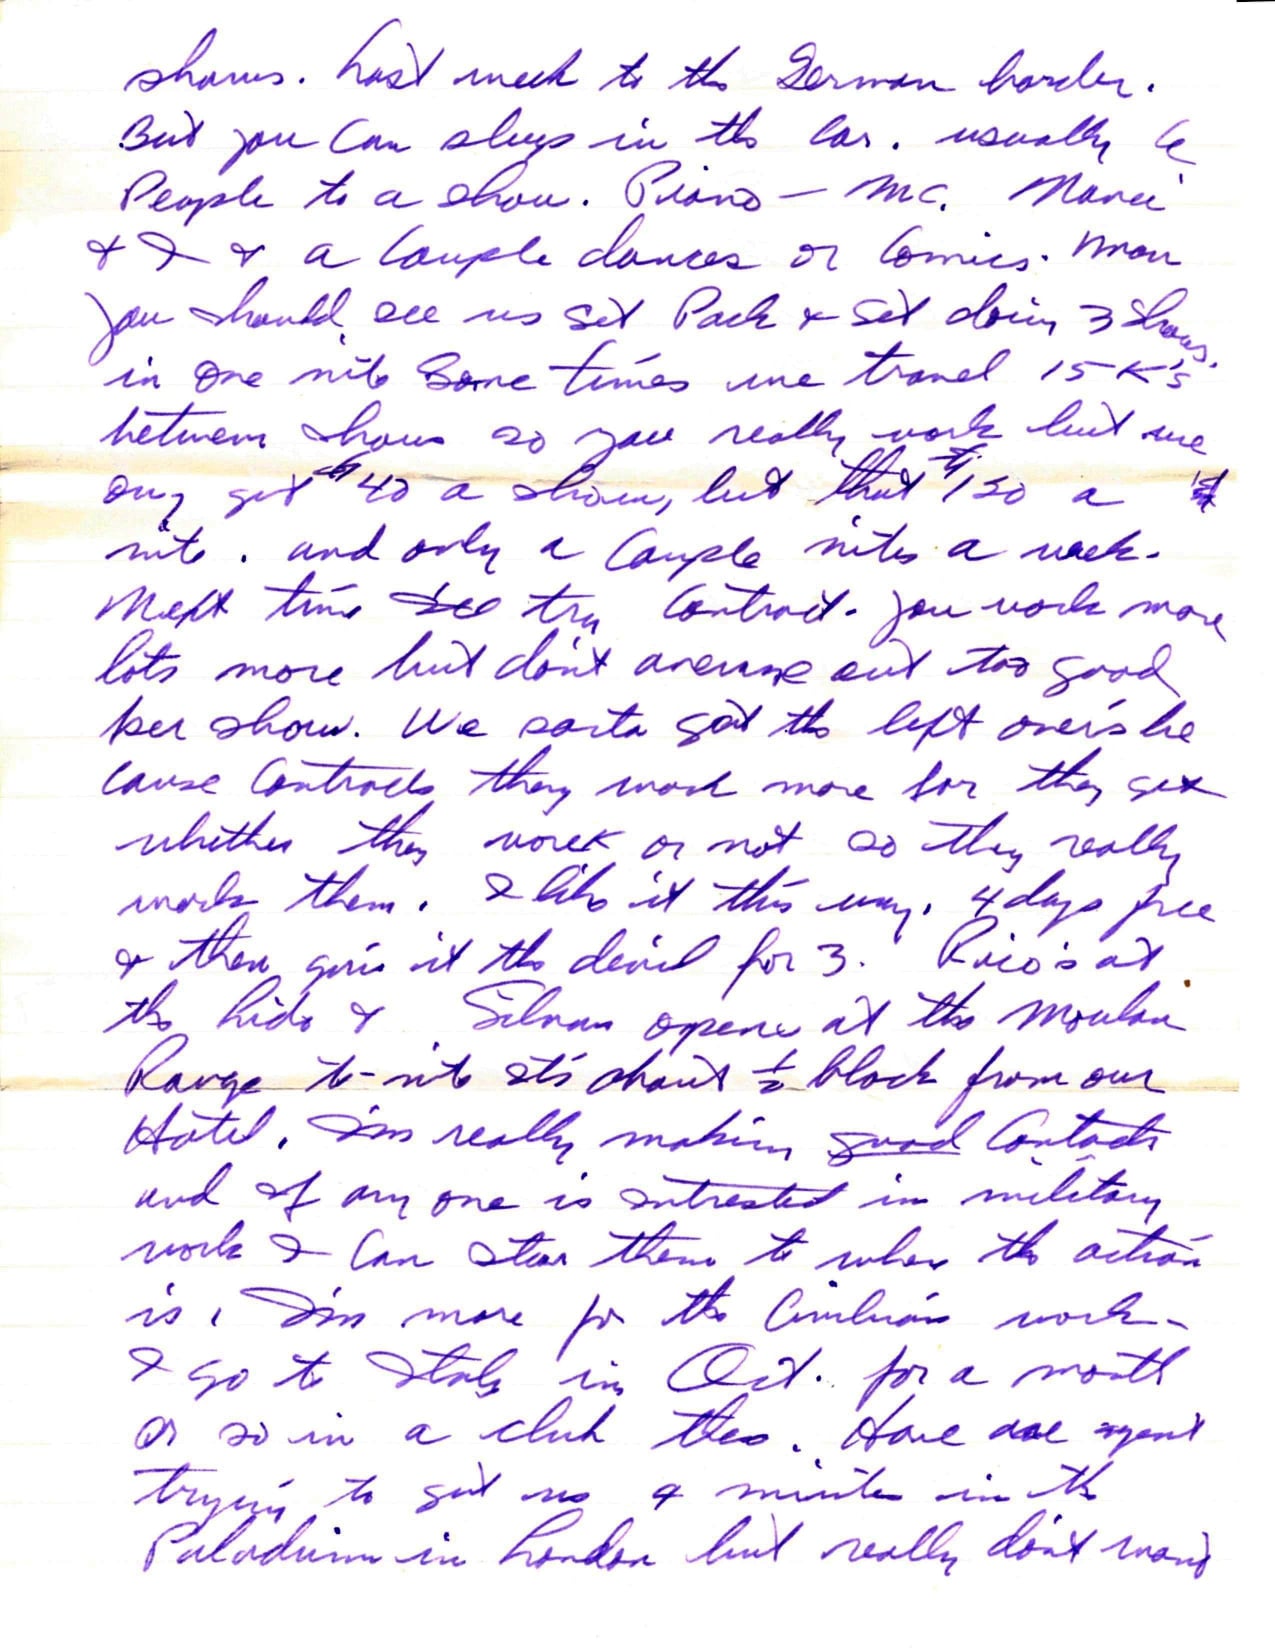 shows. Last week to the German border.
But you can sleep in the car. usually 6
People to a show. Piano — MC. Marci
& I & a couple dances or comics. Man
you should see us set Pack & set doing 3 shows.
in one nite Some times we travel 15 K's
between shows so you really work but we
ony get $40 a show, but that $120 a
nite. and only a couple nites a week.
Next time I'll try contract. you work more
lots more but don't average out too good
per show. We sorta get the left over's be
cause contracts they work more for they get
whether they work or not so they really
work them. I like it this way. 4 days free
& then give it the devil for 3. Rico's at
the Lido & Silvan opens at the Moulan
Rouge to-nite It's about ½ block from our
Hotel. I'm really making good contacts
and If any one is intrested in military
work I can stear them to where the action
is. I'm more for the civilian work-
I go to Italy in Oct. for a month
or so in a club there. Have one agent
trying to get us 9 minites in the
Paladium in London but really don't want